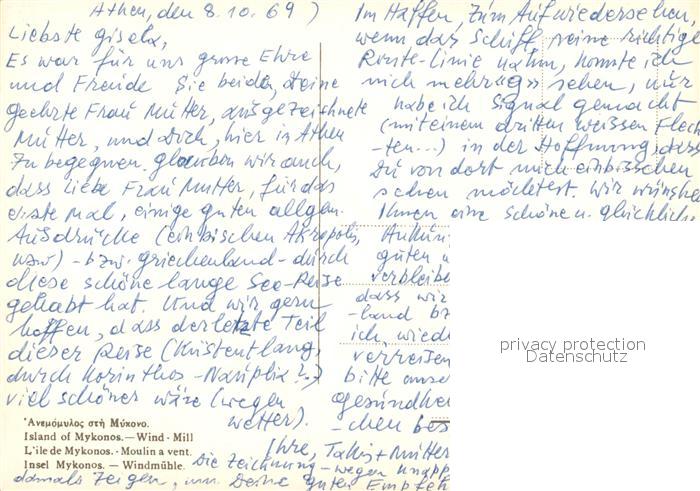 Athen, den 8.10.69)
Liebste Gisela,
Es war für uns grosse Ehre
und Freude Sie beide, Deine
geehrte Frau Mutter, ausgezeichnete
Mutter, und Dich, hier in Athen
zu begegnen. glauben wir auch,
dass liebe Frau Mutter, für das
erste Mal, einige guten allgem.
Ausdrücke (einbischen Akropolis,
usw) - bzw. griechenland - durch
diese schöne lange See-Reise
gehabt hat. Und wir gern
hoffen, dass der letzte Teil
dieser Reise (Küstentlang,
durch Korinthos - Nauplia ...)
viel schöner wäre (wegen
wetter).
Im Haffen, zum Aufwiedersehen,
wenn das Schiff, seine richtige
nahm, konnte ich
mich mehr sehen, nur
habe ich Signal gemacht
(mit einem dritten weissen Flech
-ten...) in der Hoffnung, dass
Du von dort mich einbisschen
sehen möchtest. Wir wünschen
Ihnen eine schöne u. glücklich.
Ankün
guten u
verbleibe
dass wir
-land bz
ich, wied
verreisen
bitte unse
gesundhei
-chen bes
Ihre, Takis + Mutter
Die Zeichnung - wegen unapp
damals zeigen, um Deine guten Empfeh
Ἀνεμόμυλος στὴ Μύκονο.
Island of Mykonos. — Wind - Mill
L'ile de Mykonos. - Moulin a vent.
Insel Mykonos. — Windmühle.
privacy protection
Datenschutz